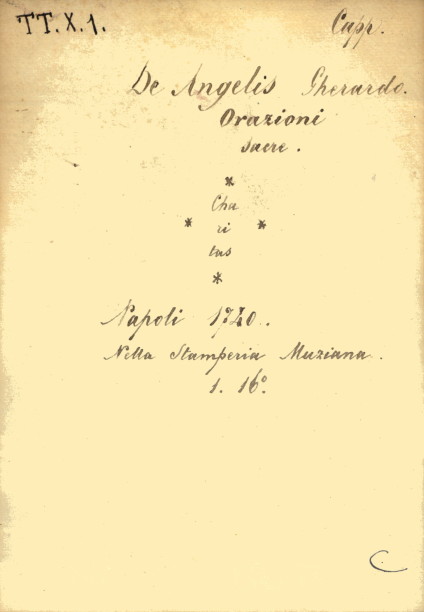 TT. X. 1. Capp.
De Angelis Gherardo.
Orazioni
sacre.
*
Cha
* ri *
tas
*
Napoli 1740.
Nella Stamperia Muziana.
1. 16º.
C.